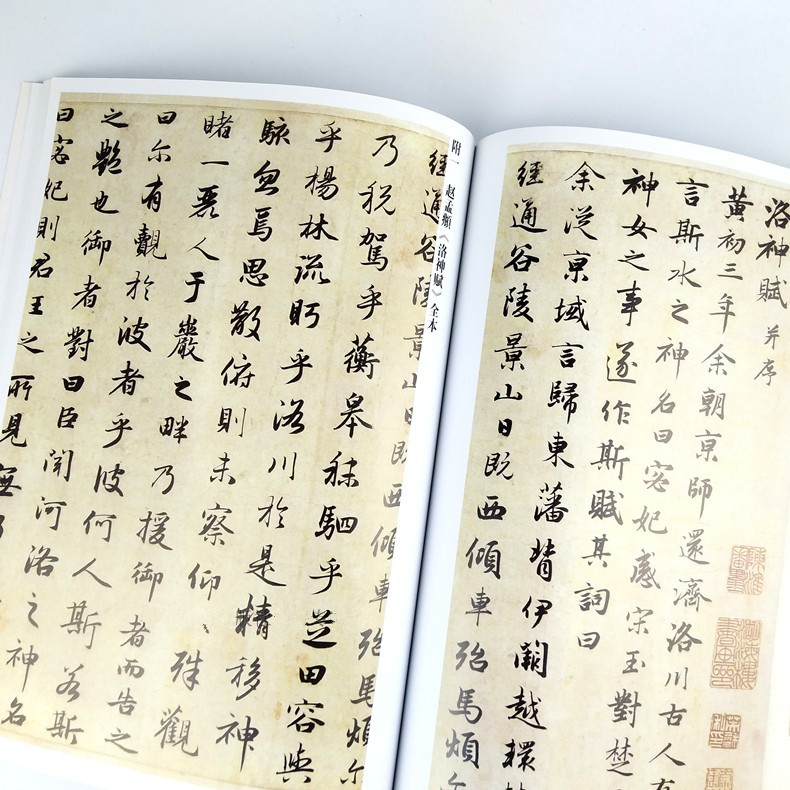 洛神賦 并序
黃初三年余朝京師還濟洛川古人有
言斯水之神名曰宓妃感宋玉對楚
神女之事遂作斯賦其詞曰
余從京域言歸東藩背伊闕越轘
經通谷陵景山日既西傾車殆馬煩尔
附一 赵孟頫《洛神赋》全本
經通谷陵景山日既西傾車殆馬煩尔
乃税駕乎蘅皋秣駟乎芝田容與
乎楊林流眄乎洛川於是精移神
駭忽焉思散俯則未察仰以殊觀
睹一麗人于巖之畔乃援御者而告之
曰尔有覿於彼者乎彼何人斯若斯
之豔也御者對曰臣聞河洛之神名
曰宓妃則君王之所見無乃